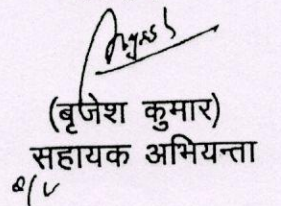 (बृजेश कुमार)
सहायक अभियन्ता